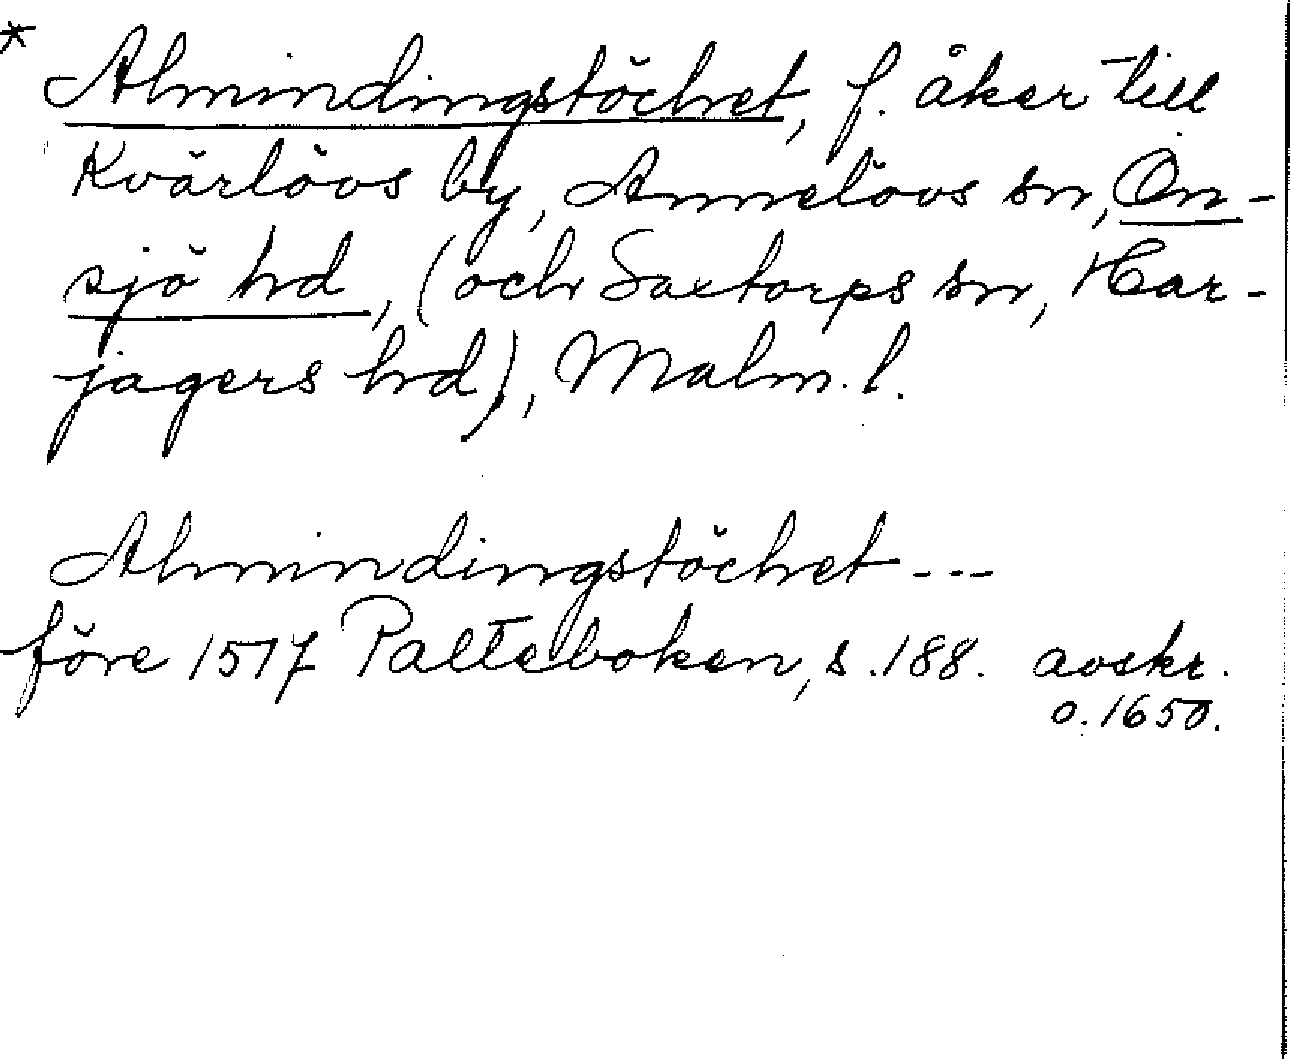 * Almindingstöchet, f. åker till
Kvärlövs by, Annelövs sn, Ön-
sjö hd, (och Saxtorps sn, Har-
jagers hd), Malm. l.
Almindingstöchet ---
före 1517 Palteboken, s. 188. avskr.
o. 1650.